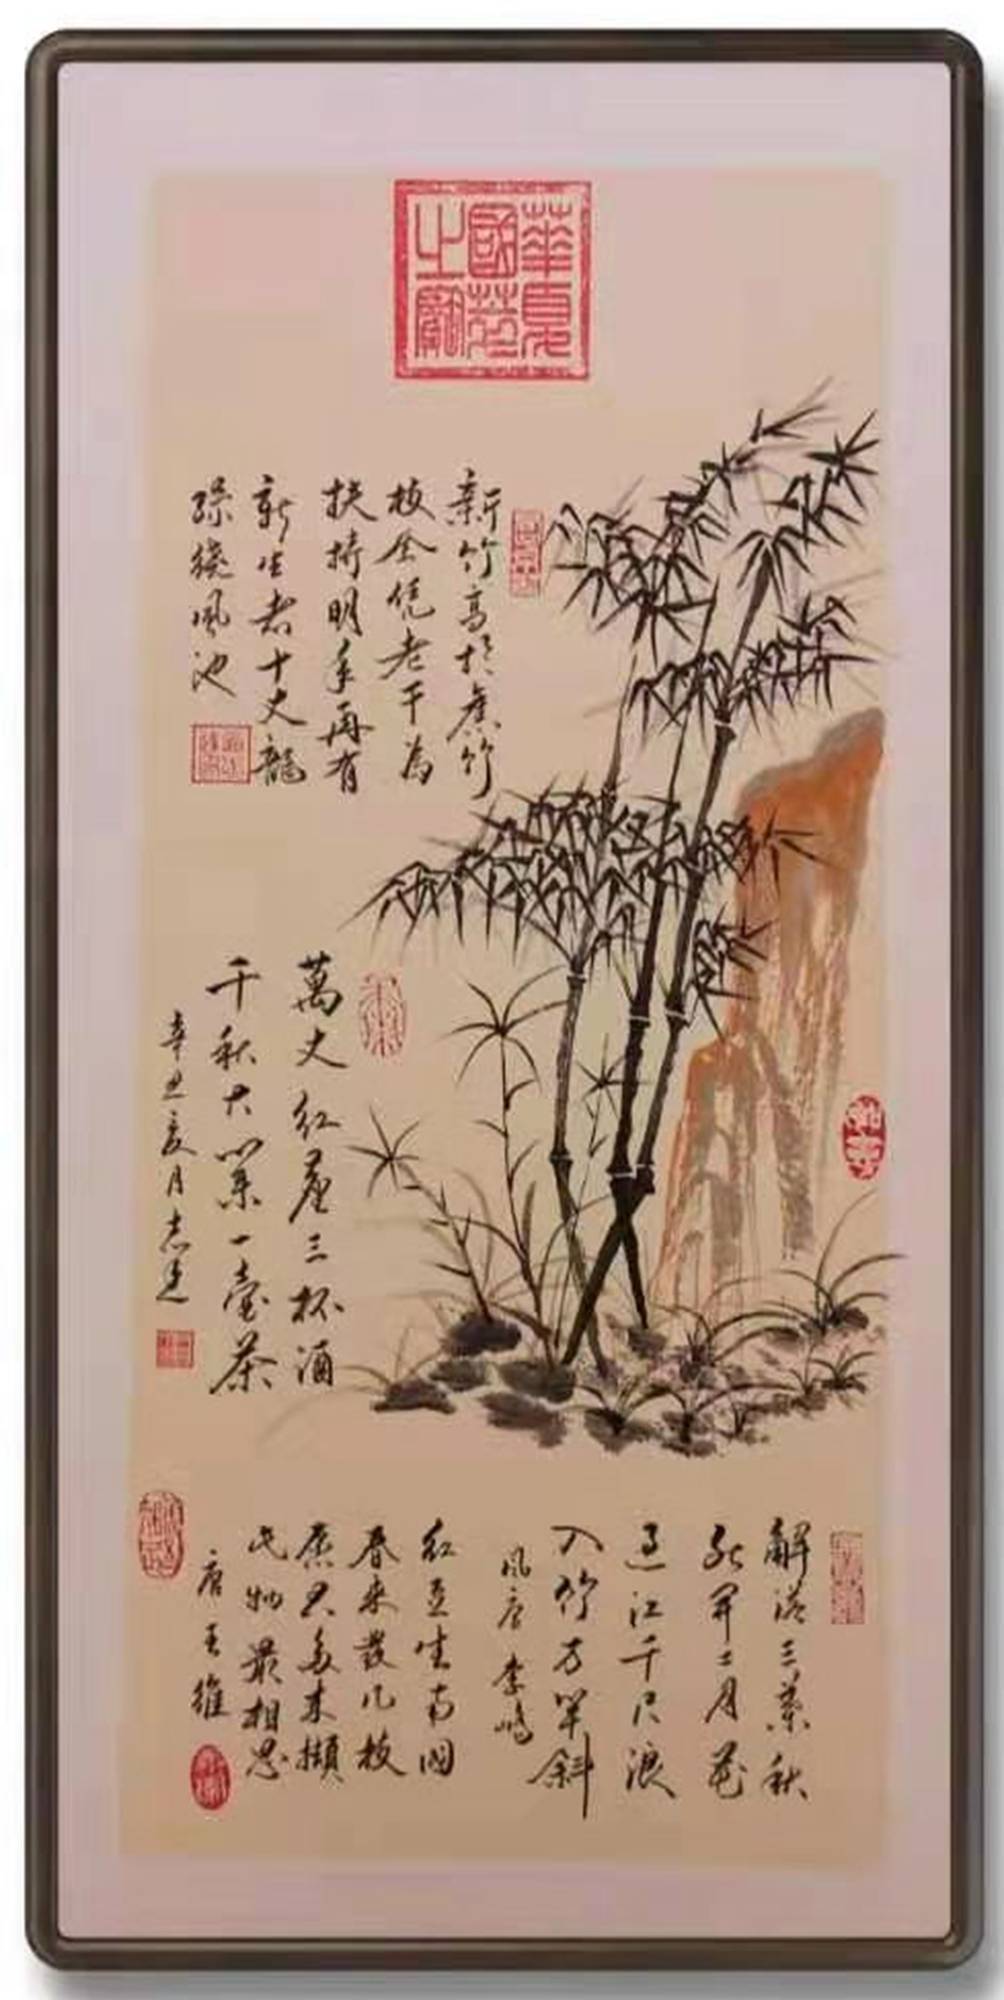 華夏
國藝
之
新竹高於舊竹
枝全凭老干為
扶持明年再有
新生者十丈龍
孫繞鳳池
萬丈红塵三杯酒
千秋大業一壺茶
辛丑夏月志
解落三葉秋
能開二月花
過江千尺浪
入竹万竿斜
風唐李嶠
红豆生南國
春来發几枝
愿君多采擷
此物最相思
唐王維